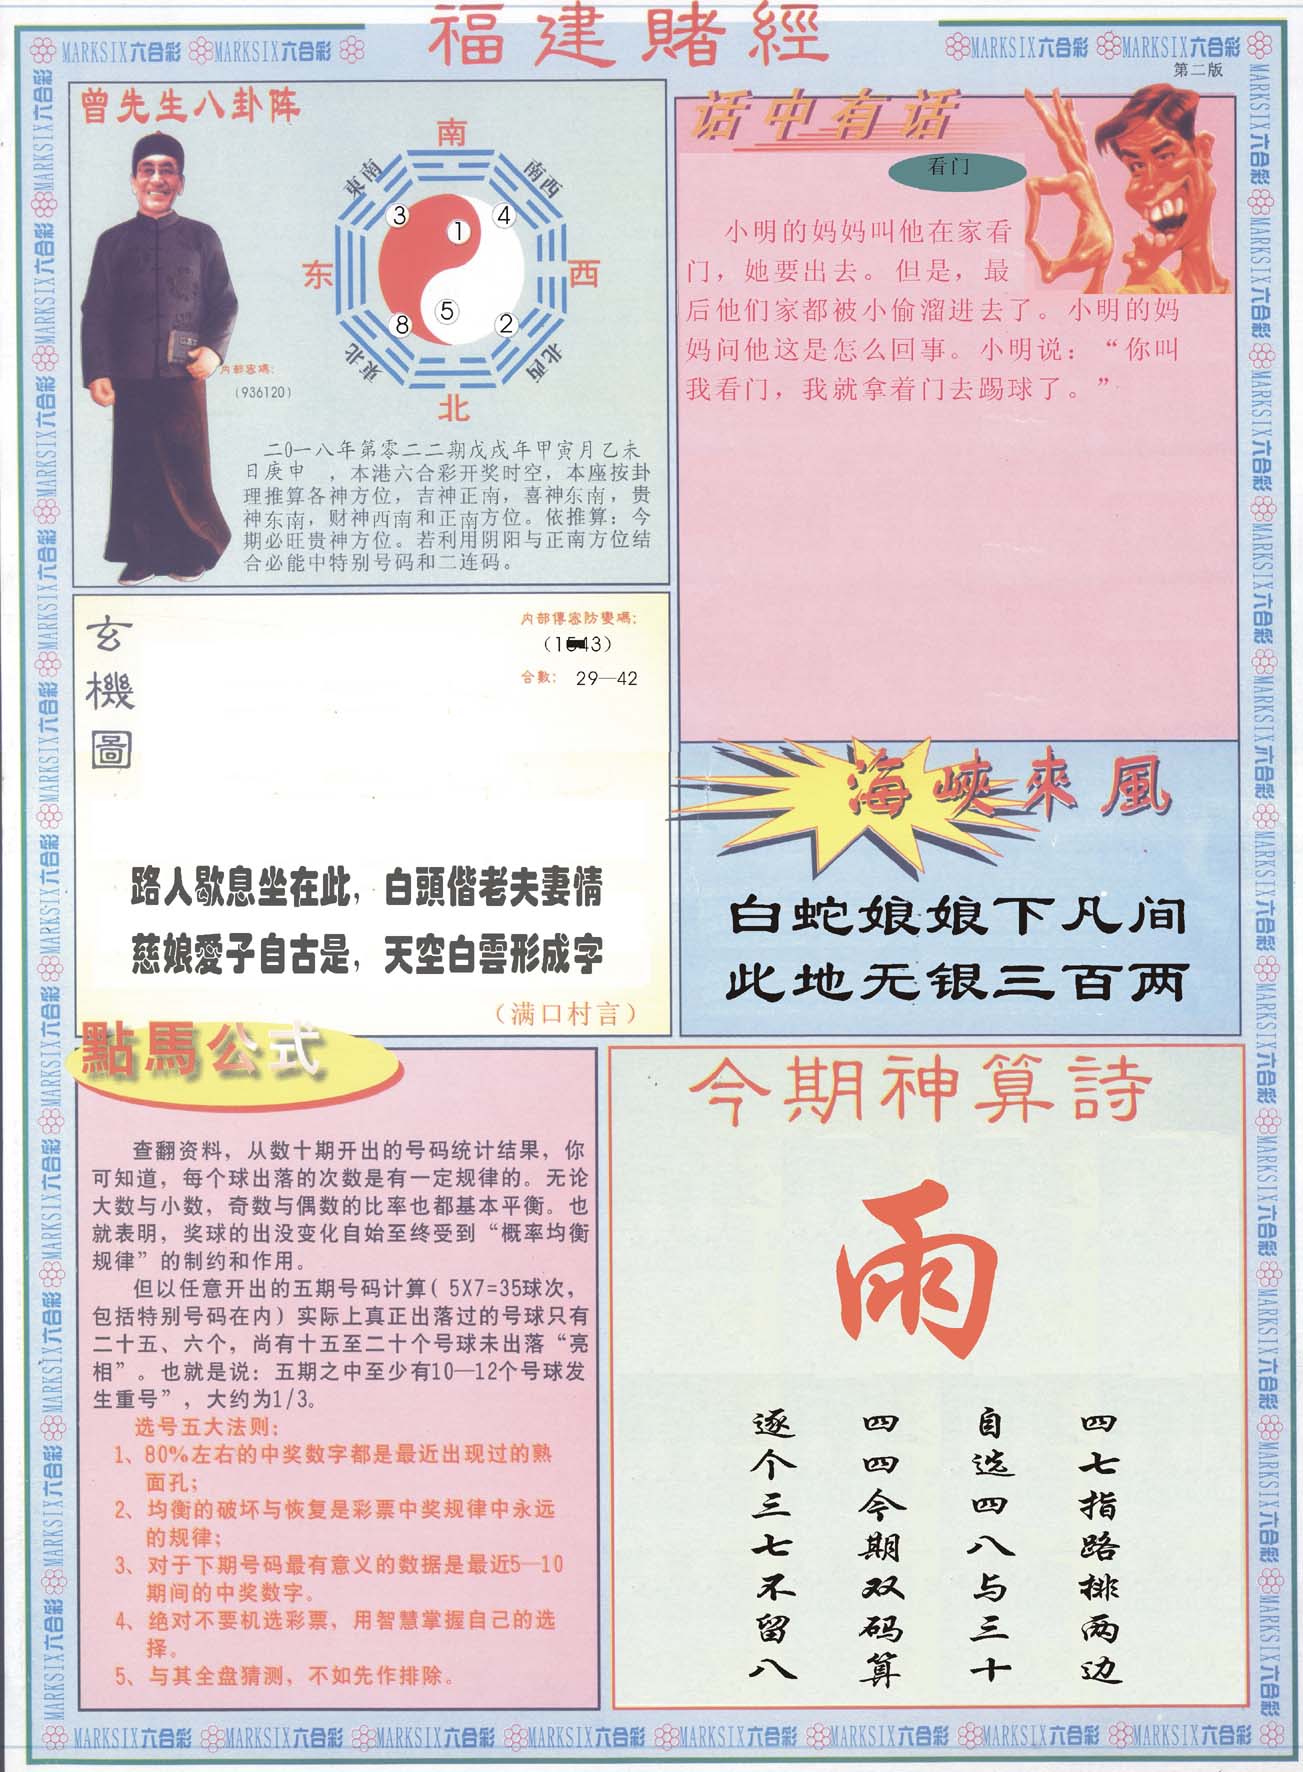 福建賭經
MARKSIX六合彩 MARKSIX六合彩
MARKSIX六合彩 MARKSIX六合彩
第二版
曾先生八卦阵
南
東南
南西
3
1
4
东
西
5
8
2
東北
北西
北
内部密碼:
(936120)
二0一八年第零二二期戊戌年甲寅月乙未
日庚申 ，本港六合彩开奖时空，本座按卦
理推算各神方位，吉神正南，喜神东南，贵
神东南，财神西南和正南方位。依推算：今
期必旺贵神方位。若利用阴阳与正南方位结
合必能中特别号码和二连码。
话中有话
看门
小明的妈妈叫他在家看
门，她要出去。但是，最
后他们家都被小偷溜进去了。小明的妈
妈问他这是怎么回事。小明说：“你叫
我看门，我就拿着门去踢球了。”
玄機圖
内部傳密防變碼:
合數: 29—42
路人歇息坐在此，白頭偕老夫妻情
慈娘愛子自古是，天空白雲形成字
（满口村言）
海峽來風
白蛇娘娘下凡间
此地无银三百两
點馬公式
查翻资料，从数十期开出的号码统计结果，你
可知道，每个球出落的次数是有一定规律的。无论
大数与小数，奇数与偶数的比率也都基本平衡。也
就表明，奖球的出没变化自始至终受到“概率均衡
规律”的制约和作用。
但以任意开出的五期号码计算( 5X7=35球次，
包括特别号码在内）实际上真正出落过的号球只有
二十五、六个，尚有十五至二十个号球未出落“亮
相”。也就是说：五期之中至少有10—12个号球发
生重号”，大约为1/3。
选号五大法则：
1、80%左右的中奖数字都是最近出现过的熟
面孔；
2、均衡的破坏与恢复是彩票中奖规律中永远
的规律；
3、对于下期号码最有意义的数据是最近5—10
期间的中奖数字。
4、绝对不要机选彩票，用智慧掌握自己的选
择。
5、与其全盘猜测，不如先作排除。
今期神算詩
雨
四七指路排两边
自选四八与三十
四四今期双码算
逐个三七不留八
MARKSIX六合彩 MARKSIX六合彩 MARKSIX六合彩 MARKSIX六合彩 MARKSIX六合彩 MARKSIX六合彩 MARKSIX六合彩 MARKSIX六合彩